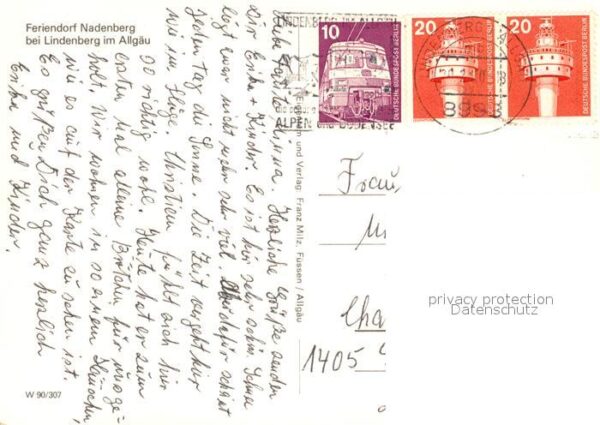 Feriendorf Nadenberg
bei Lindenberg im Allgäu
Liebe Herzliche Grüße senden
Dir Erika + Kinder. Es ist hier sehr schön. Schnee
liegt zwar nicht mehr sehr viel. Aber dafür scheint
jeden Tag die Sonne. Die Zeit vergeht hier
wie im Fluge. Christian fühlt sich hier
so richtig wohl. Heute hat er zum
ersten mal alleine Brötchen für uns ge-
holt. Wir wohnen in so einem Häuschen,
wie es auf der Karte zu sehen ist.
Es grüßen Dich ganz herzlich
Erika und Kinder.
W 90/307
und Verlag Franz Milz, Füssen / Allgäu
10
DEUTSCHE BUNDESPOST BERLIN
20
DEUTSCHE BUNDESPOST BERLIN
20
DEUTSCHE BUNDESPOST BERLIN
LINDENBERG IM ALLGÄU
ALPEN UND BODENSEE
Frau
Cha
1405
privacy protection
Datenschutz